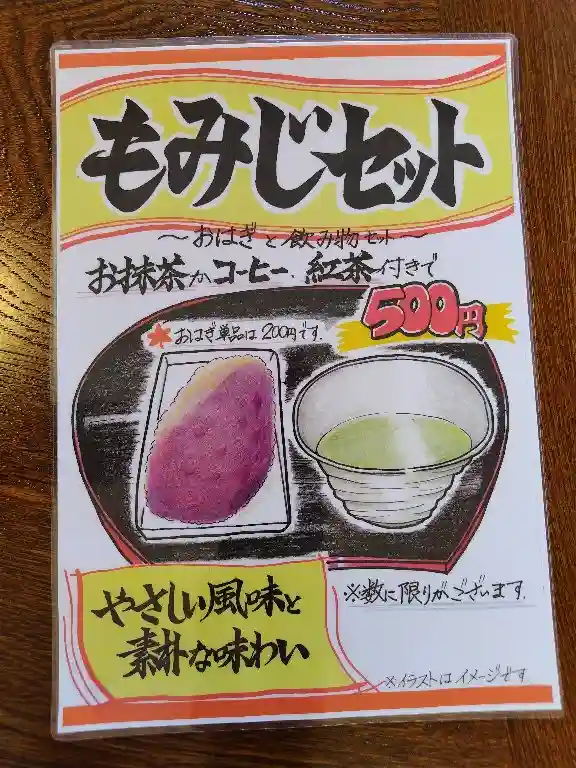 もみじセット
～おはぎと飲み物セット～
お抹茶かコーヒー、紅茶付きで
500円
おはぎ単品は200円です。
やさしい風味と
素朴な味わい
※数に限りがございます。
※イラストはイメージです